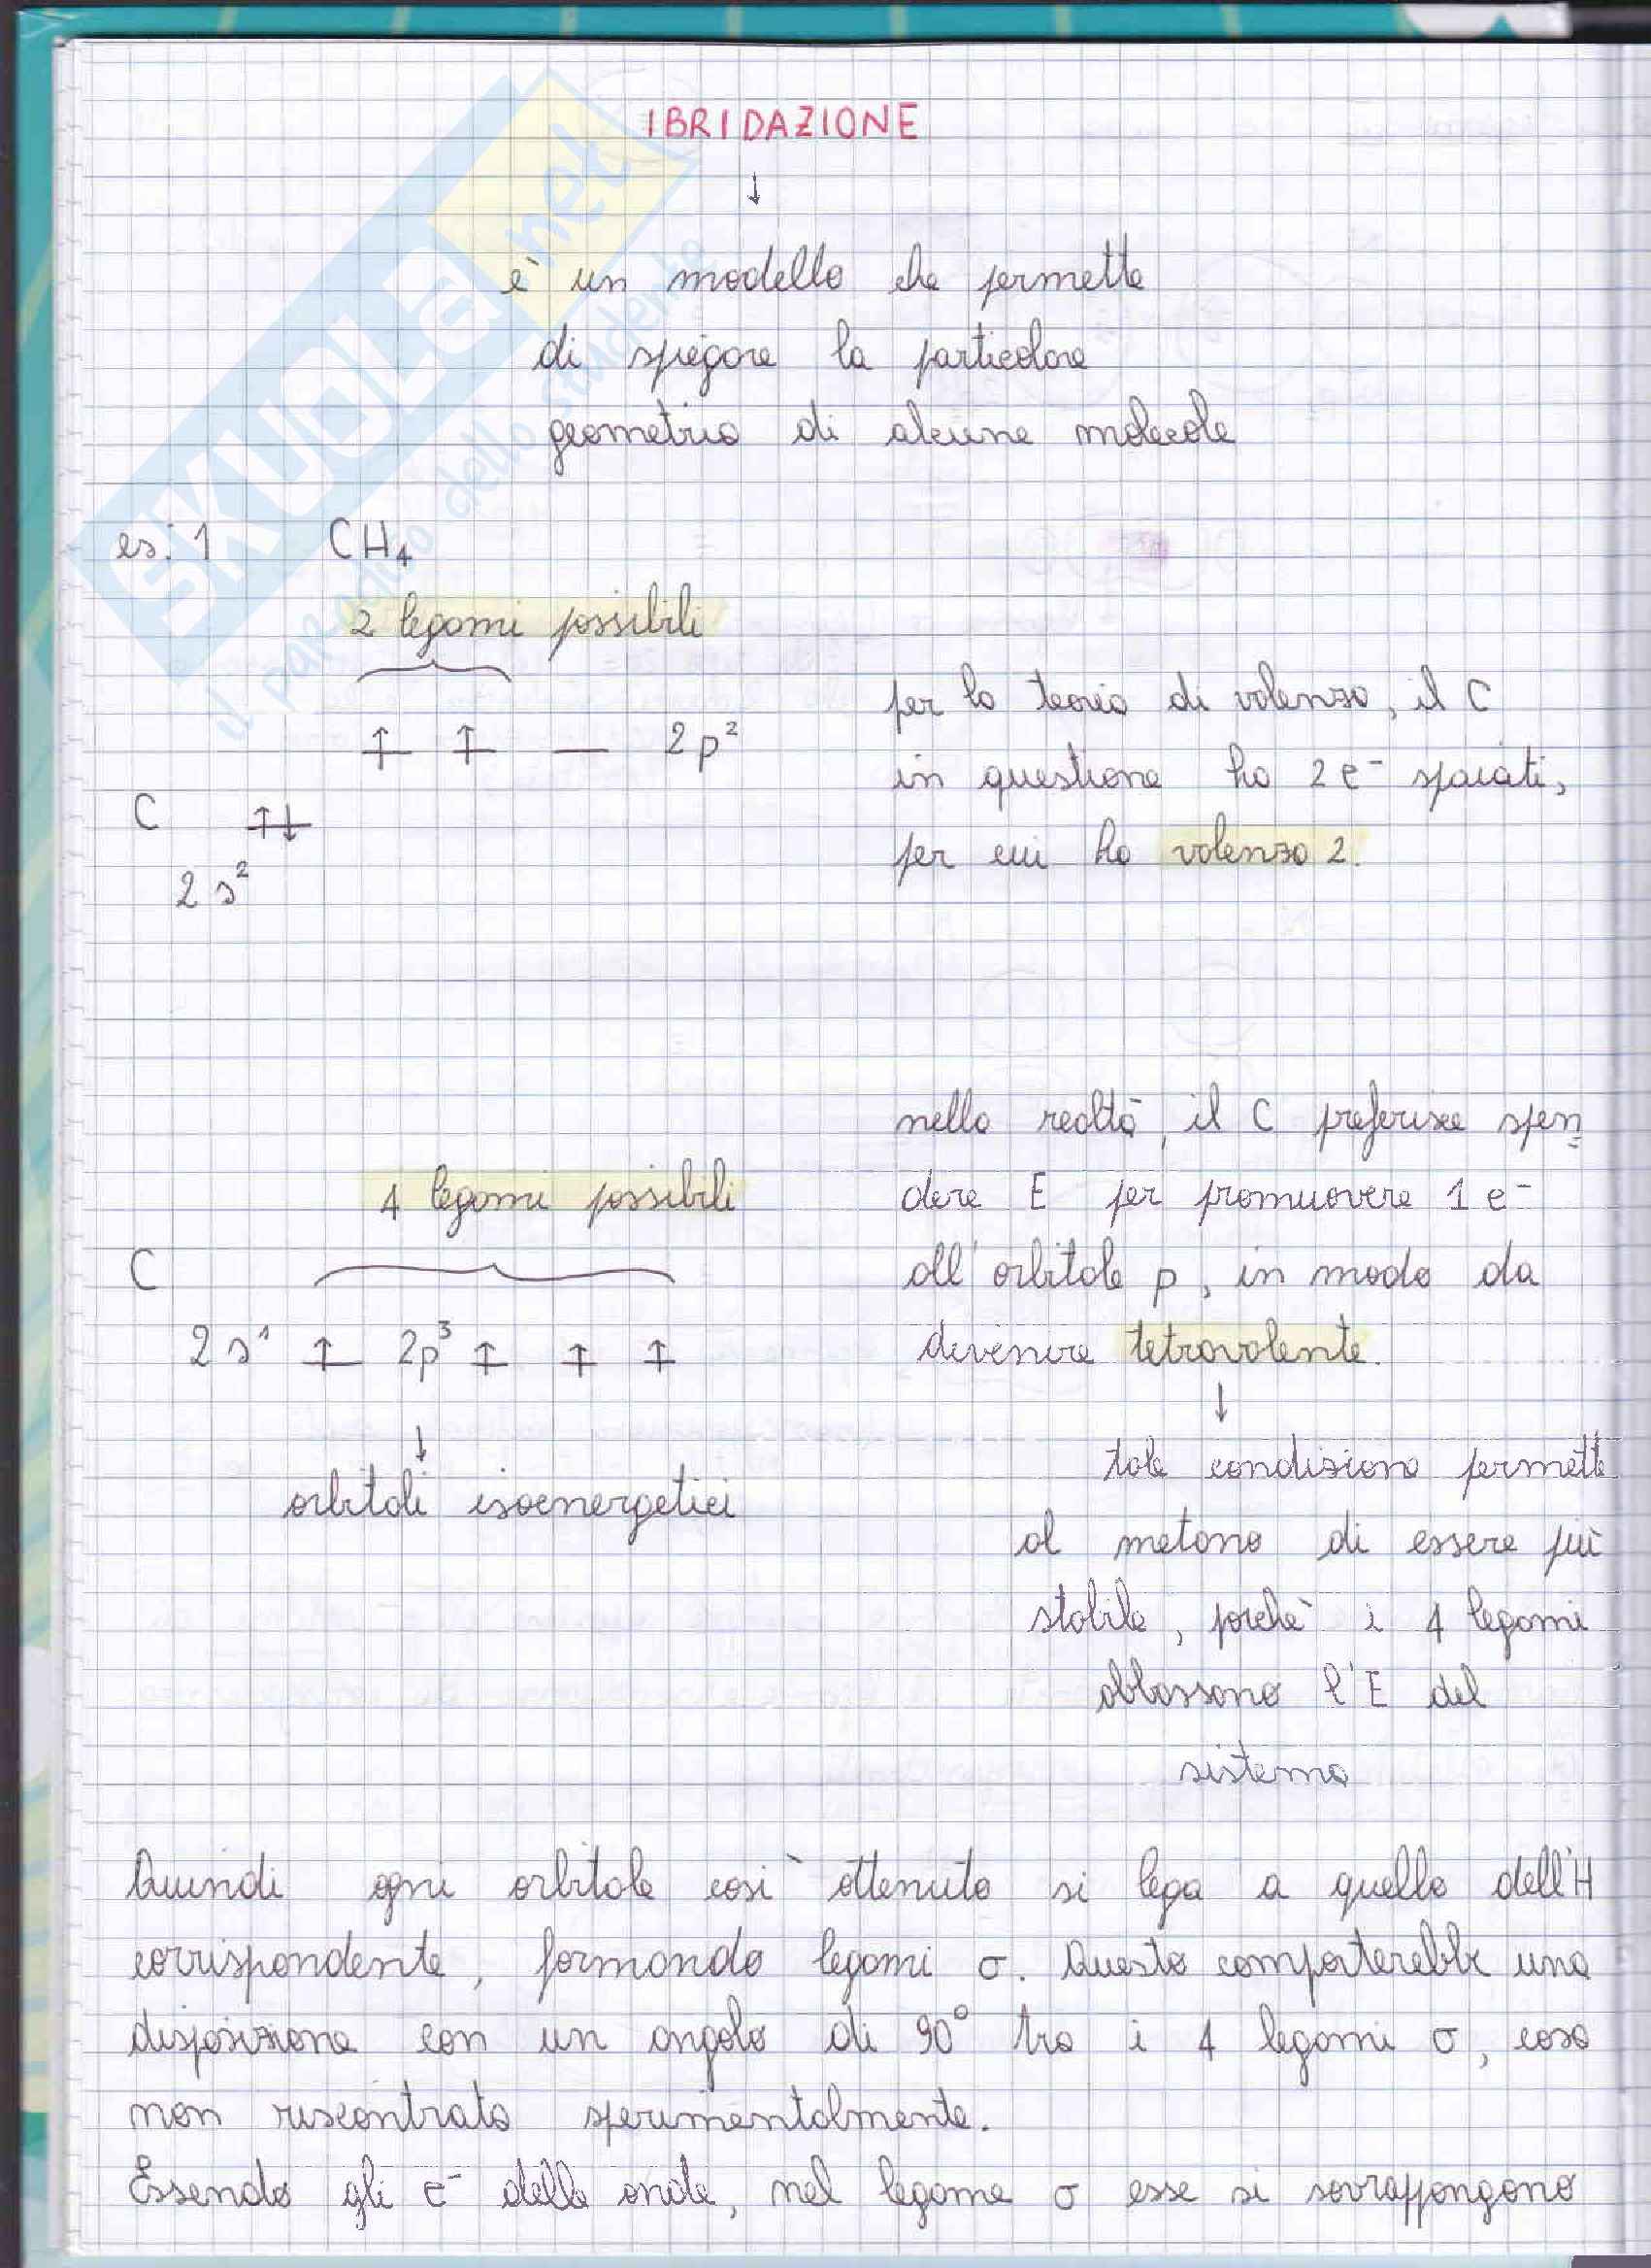 IBRIDAZIONE
↓
è un modello che permette
di spiegare la particolare
geometria di alcune molecole
es: 1 CH₄
2 legami possibili
↑ ↑ — 2p²
C ↑↓
2s²
per la teoria di valenza, il C
in questione ha 2 e⁻ spaiati,
per cui ha valenza 2.
nella realtà, il C preferisce spen=
dere E per promuovere 1 e⁻
all'orbitale p, in modo da
divenire tetravalente.
↓
tale condizione permette
al metano di essere più
stabile, perchè i 4 legami
abbassano l'E del
sistema
4 legami possibili
C
2s¹ ↑ 2p³ ↑ ↑ ↑
↓
orbitali isoenergetici
Quindi ogni orbitale così ottenuto si lega a quello dell'H
corrispondente, formando legami σ. Questo comporterebbe una
disposizione con un angolo di 90° tra i 4 legami σ, cosa
non riscontrata sperimentalmente.
Essendo gli e⁻ delle onde, nel legame σ esse si sovrappongono
SKUOLA.net
il paradiso dello studente